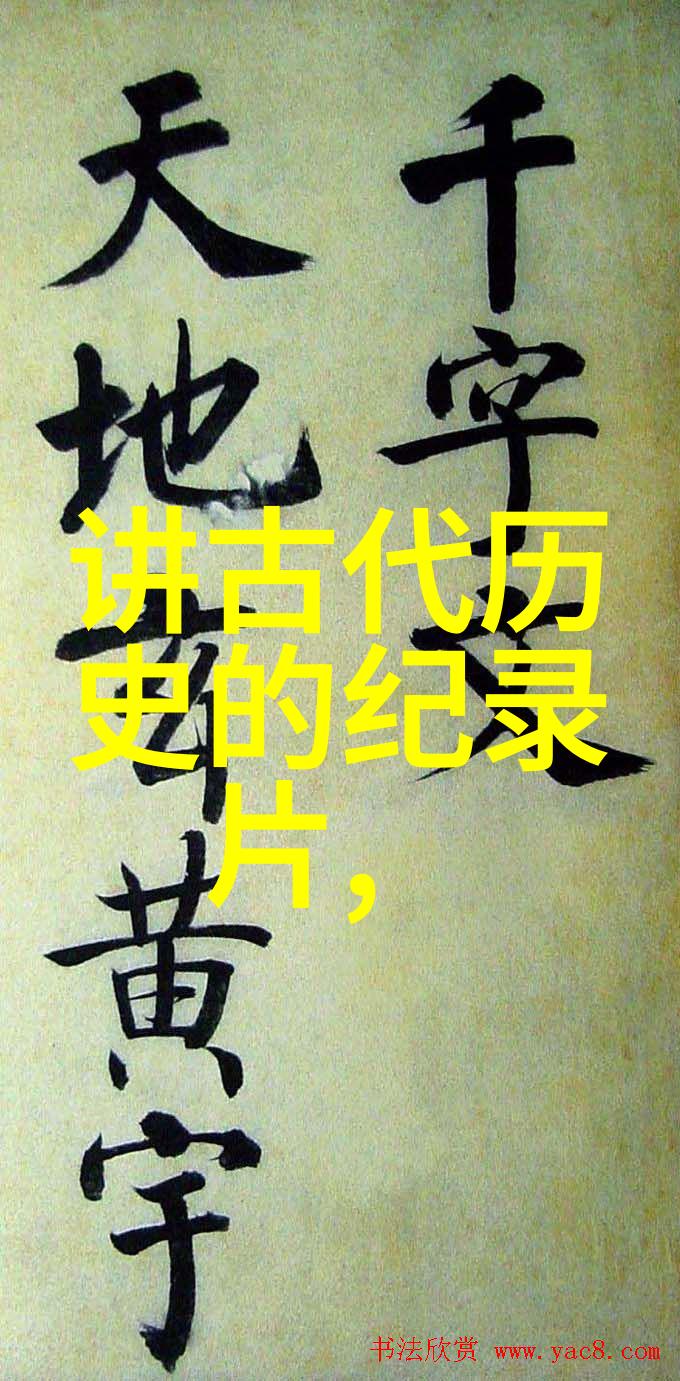 千字文
天地玄黄宇
讲古代历
史的纪录
片，
书法欣赏 www.yac8.com